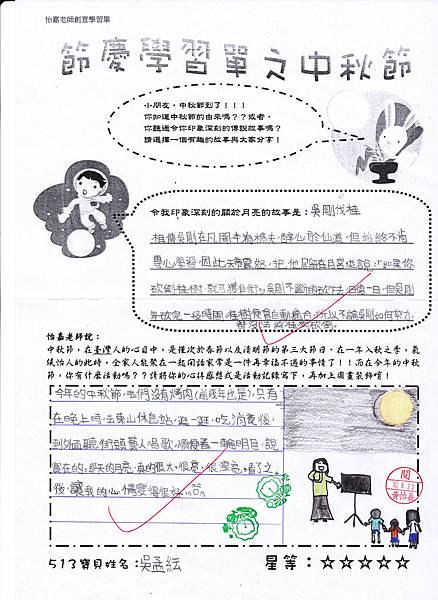 怡嘉老師創意學習單
節慶學習單之中秋節
小朋友，中秋節到了！！！
你知道中秋節的由來嗎？？或者，
你聽過令你印象深刻的傳說故事嗎？
請選擇一個有趣的故事與大家分享！
令我印象深刻的關於月亮的故事是：吳剛伐桂
相傳吳剛在凡間本為樵夫，醉心於仙道，但始終不肯
專心學習，因此天帝震怒，把他居在月宮，並說：「如果你
砍倒桂樹，就可獲仙術。」吳剛不斷的砍下去，日復一日，但吳剛
每砍完一段時間，桂樹便會自動癒合，所以不論吳剛如何努力，
都沒法將桂樹砍倒。
怡嘉老師說：
中秋節，在臺灣人的心目中，是僅次於春節以及清明節的第三大節日，在一年入秋之季，氣
候怡人的此時，全家人能聚在一起閒話家常是一件再幸福不過的事情了！！而在今年的中秋
節，你有什麼活動嗎？？請將你的心得感想或是活動記錄寫下，再加上圖畫裝飾唷！
今年的中秋節，咱們沒有烤肉(前幾年也是)，只有
在晚上時，去東山休息站，逛一逛、吃消夜後，
到外面聽街頭藝人唱歌，順便看一輪明月，說
實在的，那天的月亮，真的很大、很亮、很漂亮，看了之
後，讓我的心情變得很好。
閱
黃怡嘉
513寶貝姓名：吳孟紜
星等：☆☆☆☆☆